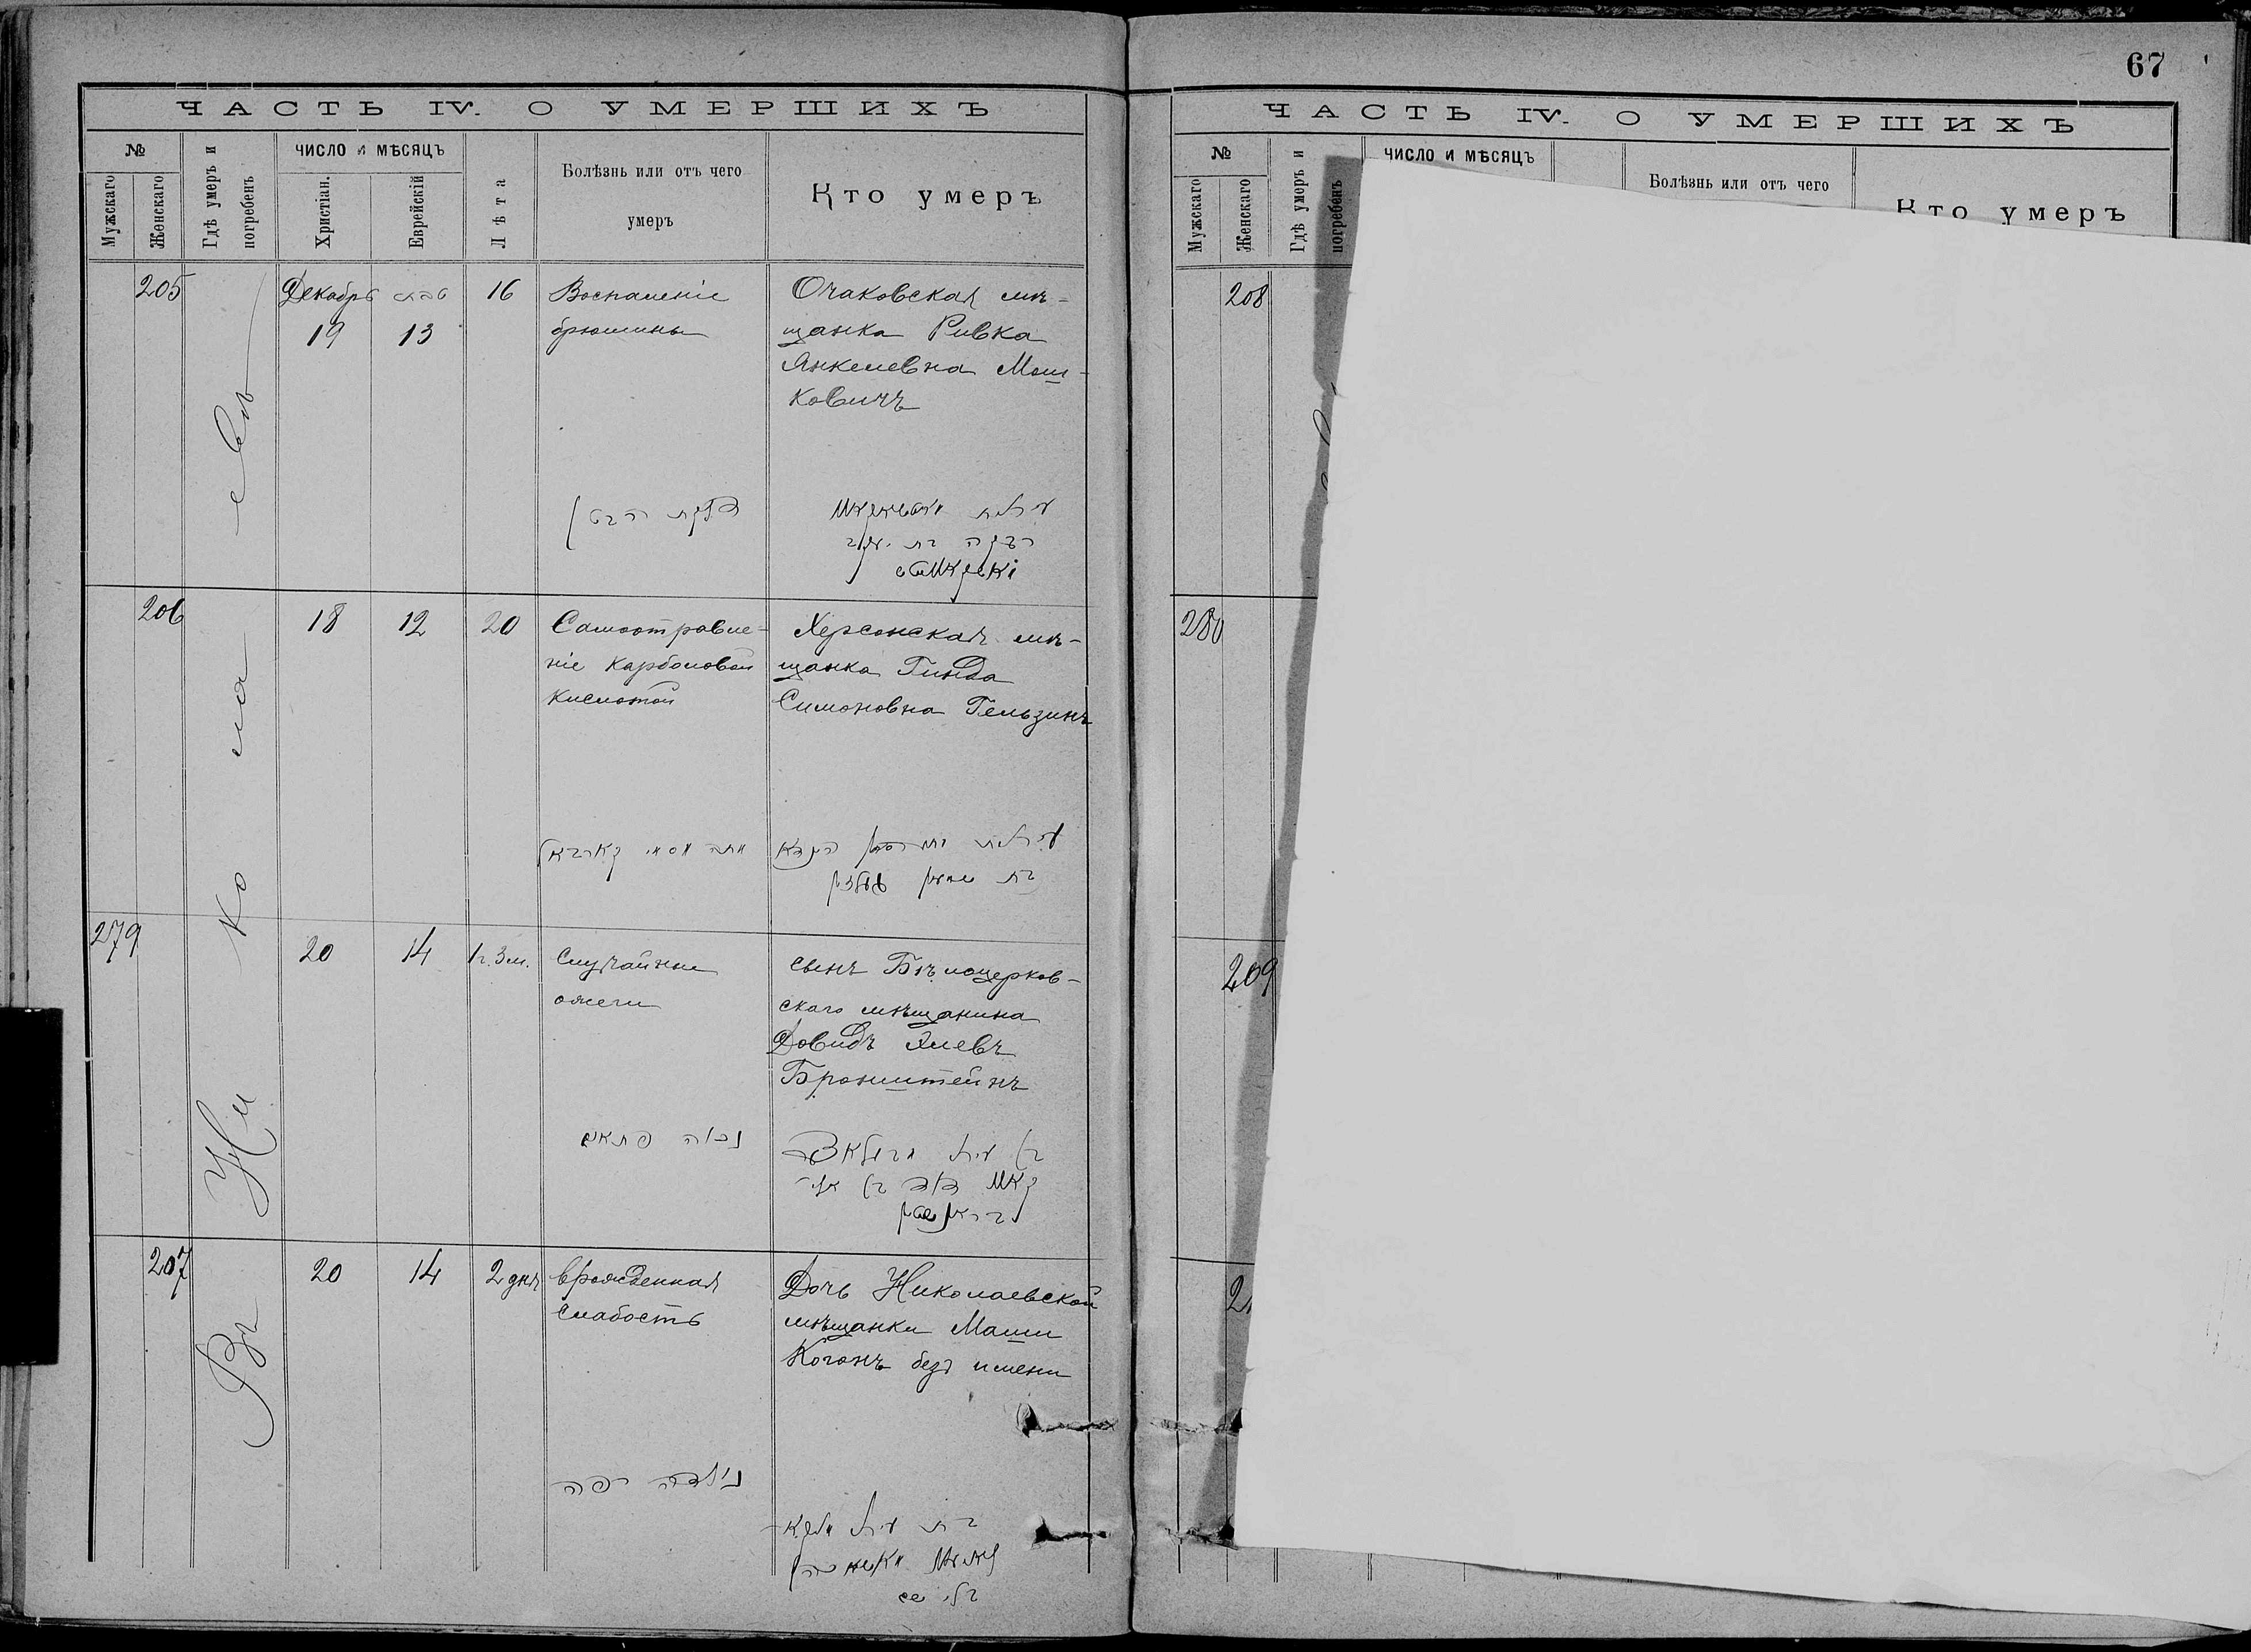 67
ЧАСТЬ IV. О УМЕРШИХЪ
№
Мужскаго
Женскаго
Гдѣ умеръ и погребенъ
ЧИСЛО и МѢСЯЦЪ
Христіан.
Еврейскій
Лѣта
Болѣзнь или отъ чего
умеръ
Кто умеръ
Въ Николаевѣ
205
Декабрь
טבת
19
13
16
Воспаленіе
брюшины
Очаковская мѣ-
щанка Ривка
Янкелевна Мош-
ковичъ
דלקת הבטן
רבקה בת יעקב
206
18
12
20
Самоотравле-
ніе карболовой
кислотой
Херсонская мѣ-
щанка Гинда
Симоновна Гельзинъ
279
20
14
1 г. 3 м.
Случайные
ожеги
сынъ Бѣлоцерков-
скаго мѣщанина
Довидъ Элевъ
Бронштейнъ
נכוה פתאם
207
20
14
2 дня
врожденная
слабость
Дочь Николаевской
мѣщанки Маши
Коганъ безъ имени
נולדה רפה
בלי שם
ЧАСТЬ IV. О УМЕРШИХЪ
№
Мужскаго
Женскаго
Гдѣ умеръ и погребенъ
ЧИСЛО И МѢСЯЦЪ
Болѣзнь или отъ чего
Кто умеръ
208
280
209